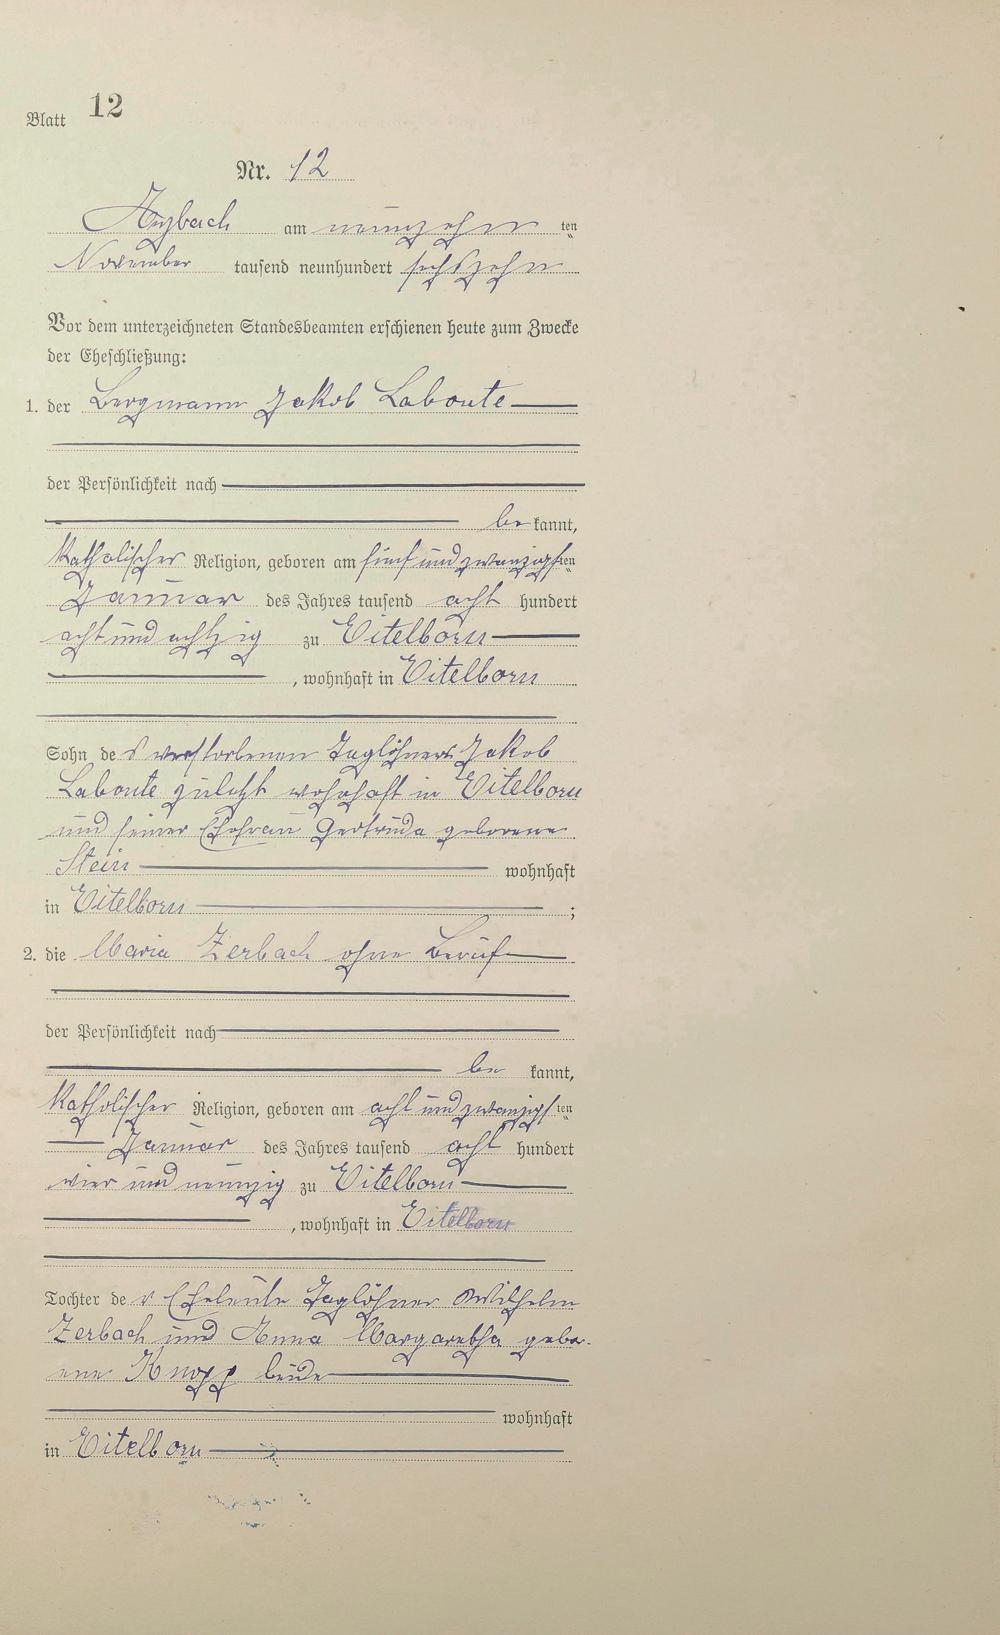 Blatt 12
Nr. 12
Arzbach am neunzehnten
November tausend neunhundert sechszehn
Vor dem unterzeichneten Standesbeamten erschienen heute zum Zwecke
der Eheschließung:
1. der Bergmann Jakob Labonte
der Persönlichkeit nach
be kannt,
katholischer Religion, geboren am fünfundzwanzigsten
Januar des Jahres tausend acht hundert
acht und achtzig zu Eitelborn
, wohnhaft in Eitelborn
Sohn des verstorbenen Taglöhners Jakob
Labonte zuletzt wohnhaft in Eitelborn
und seiner Ehefrau Gertruda geborene
Stein wohnhaft
in Eitelborn ;
2. die Maria Zerbach ohne Beruf
der Persönlichkeit nach
be kannt,
katholischer Religion, geboren am acht und zwanzigsten
Januar des Jahres tausend acht hundert
vier und neunzig zu Eitelborn
, wohnhaft in Eitelborn
Tochter der Eheleute Taglöhner Wilhelm
Zerbach und Anna Margaretha gebor-
ene Knopp beide
wohnhaft
in Eitelborn